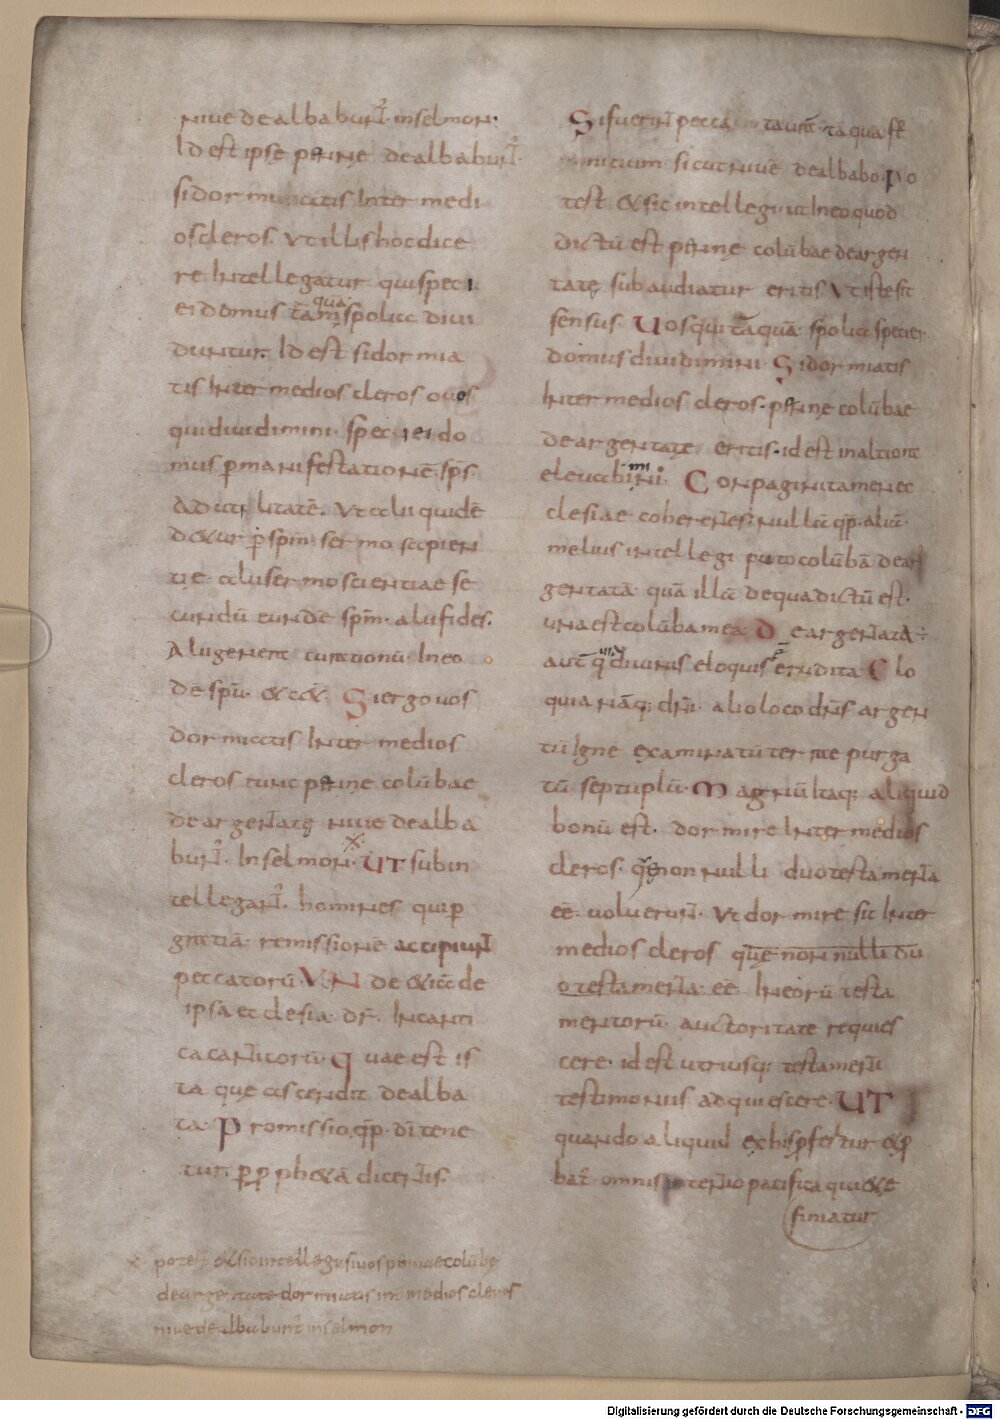 niue dealbabunt̄ · in selmon ·
Id est ipse pennę dealbabunt̄ ·
si dormiatis inter medi
os cleros · Ut illis hoc dice
re intellegatur qui speci
ei domus tāquā spolia diui
duntur · Id est si dormia
tis inter medios cleros o uos
qui diuidimini · speciei do
mus p manifestationē sp̄s
ad utilitatē · Ut alii quidē
detur p sp̄m · sermo sapien
tie · alii sermo scientiae se
cundū eundē sp̄m · alii fides ·
Alii genera curationū · In eo
dē sp̄u · & cet̄ · Si ergo uos
dormiatis inter medios
cleros tunc pennę colūbae
deargentatę niue dealba
bunt̄ · In selmon · UT subin
tellegant̄ · homines qui p
gratiā · remissionē accipiunt
peccatorū · UNde etiā de
ipsa ecclesia · dr̄ · In canti
ca canticorū · Quae est is
ta que ascendit dealba
ta · Promissio qp̄p · dī tene
tur p pphetā dicentis ·
Si fuerint pecca ta urā̄ tāquā
sicut niuē dealbabo · Po
test & sic intellegi · ut in eo quod
dictū est pennę colūbae deargen
tatę subaudiatur eritis · Ut iste sit
sensus · Uos qui tāquā · spolia speciei
domus diuidimini · Si dormiatis
inter medios cleros · pennę colūbae
deargentatę eritis · id est in altiora
eleuabimini · Conpagini tamen ec
clesiae coherentes · nullū qp̄p · aliū
melius intellegi puto colūbā dear
gentatā · quā illū de qua dictū est ·
una est colūba mea · Deargentata
autē qia diuinis eloquiis erudita · Elo
quia nāq; dn̄i · alio loco dn̄s argen
tū igne examinatū terre purga
tū septuplū · Magnū itaq; aliquid
bonū est · dormire inter medios
cleros · quę nonnulli duo testamenta
eē · uoluerunt · Ut dormire sit inter
medios cleros que nonnulli du
o testamenta · eē · in eorū testa
mentorū · auctoritate requies
cere · id est utriusq; testamenti
testimoniis adquiescere · UT
quando aliquid ex his pfertur & p
bat̄ · omnis intentio pacifica quiete
finiatur
potest & sic intellegi si uos pennae colūbe
deargentate dormiatis int̄ medios cleros
niue dealbabunt̄ in selmon
Digitalisierung gefördert durch die Deutsche Forschungsgemeinschaft - DFG